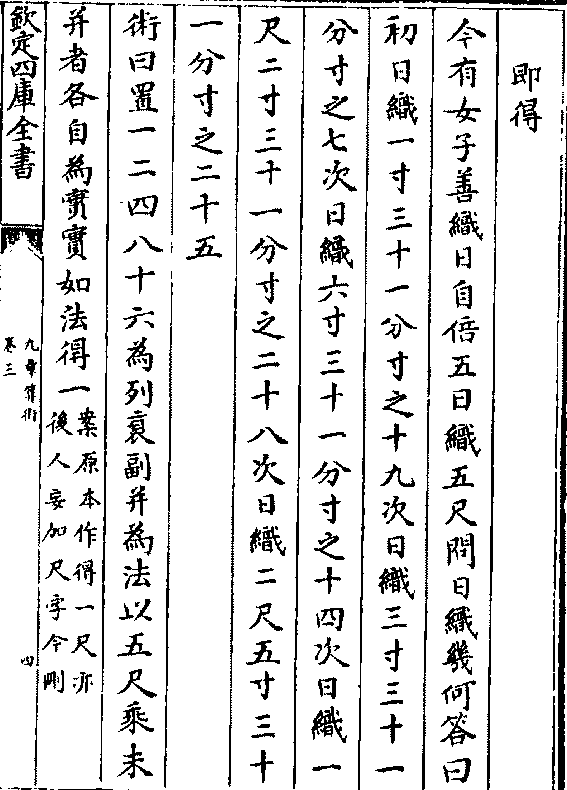 即得
今有女子善織日自倍五日織五尺問日織幾何答曰
初日織一寸三十一分寸之十九次日織三寸三十一
分寸之七次日織六寸三十一分寸之十四次日織一
尺二寸三十一分寸之二十八次日織二尺五寸三十
一分寸之二十五
術曰置一二四八十六為列衰副并為法以五尺乘未
并者各自為實實如法得一案原本作得一尺亦
後人妄加尺字今刪
欽定四庫全書
九章算術
卷三
四